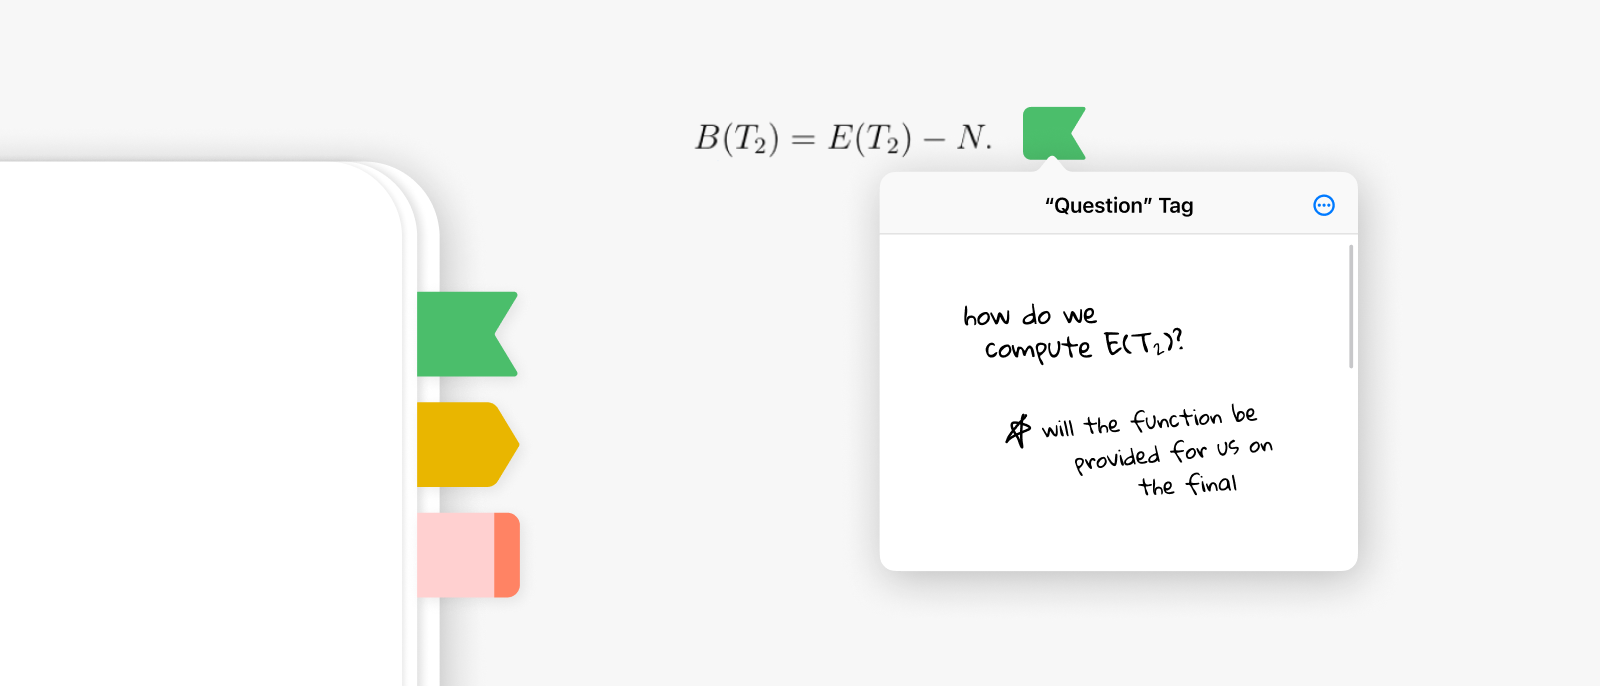 B(T₂) = E(T₂) − N.
“Question” Tag
how do we
compute E(T₂)?
will the function be
provided for us on
the final